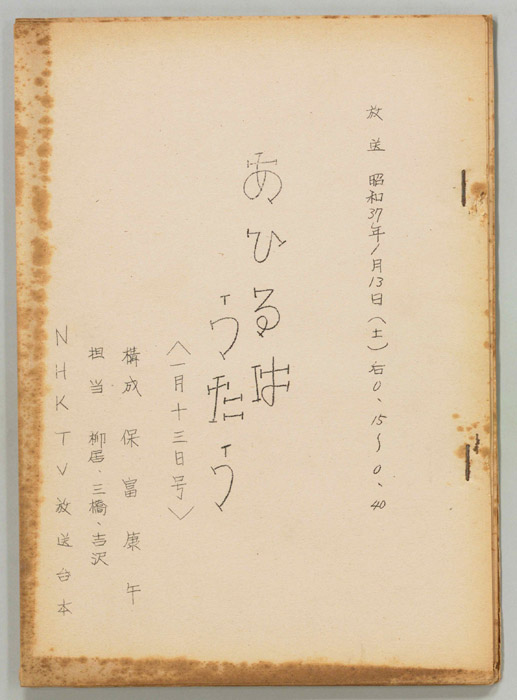 放送 昭和37年1月13日(土)后0、15〜0、40
あひるは
うたう
〈一月十三日号〉
構成 保富康午
担当 柳居・三橋・吉沢
NHK TV 放送台本